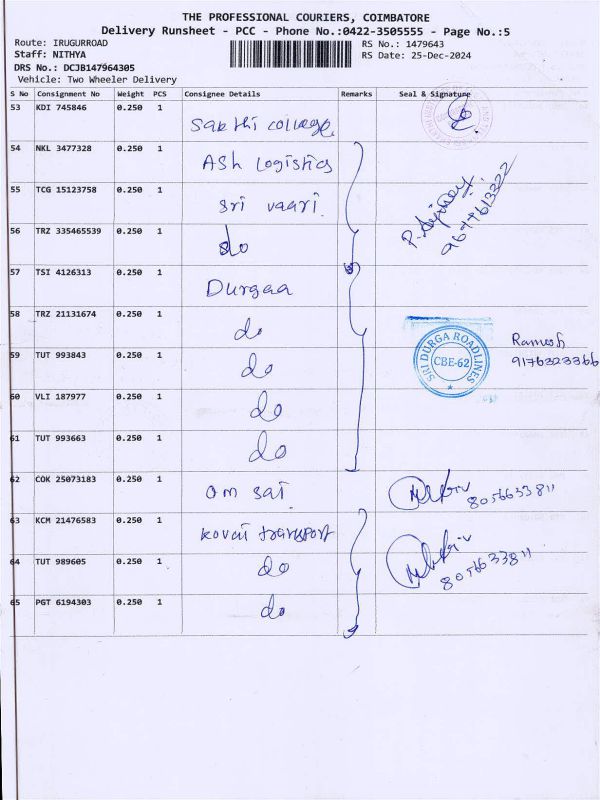 THE PROFESSIONAL COURIERS, COIMBATORE
Delivery Runsheet - PCC - Phone No.:0422-3505555 - Page No.:5
Route: IRUGURROAD RS No.: 1479643
Staff: NITHYA RS Date: 25-Dec-2024
DRS No.: DCJB147964305
Vehicle: Two Wheeler Delivery
S No Consignment No Weight PCS Consignee Details Remarks Seal & Signature
53 KDI 745846 0.250 1 Sakthi college
54 NKL 3477328 0.250 1 ASh Logistics
55 TCG 15123758 0.250 1 Sri vaari
56 TRZ 335465539 0.250 1 do
57 TSI 4126313 0.250 1 Durgaa
58 TRZ 21131674 0.250 1 do
SRI DURGA ROADLINES CBE-62
Ramesh
9176323366
59 TUT 993843 0.250 1 do
60 VLI 187977 0.250 1 do
61 TUT 993663 0.250 1 do
62 COK 25073183 0.250 1 om sai 8056633811
63 KCM 21476583 0.250 1 kovai transport
64 TUT 989605 0.250 1 do 8056633811
65 PGT 6194303 0.250 1 do